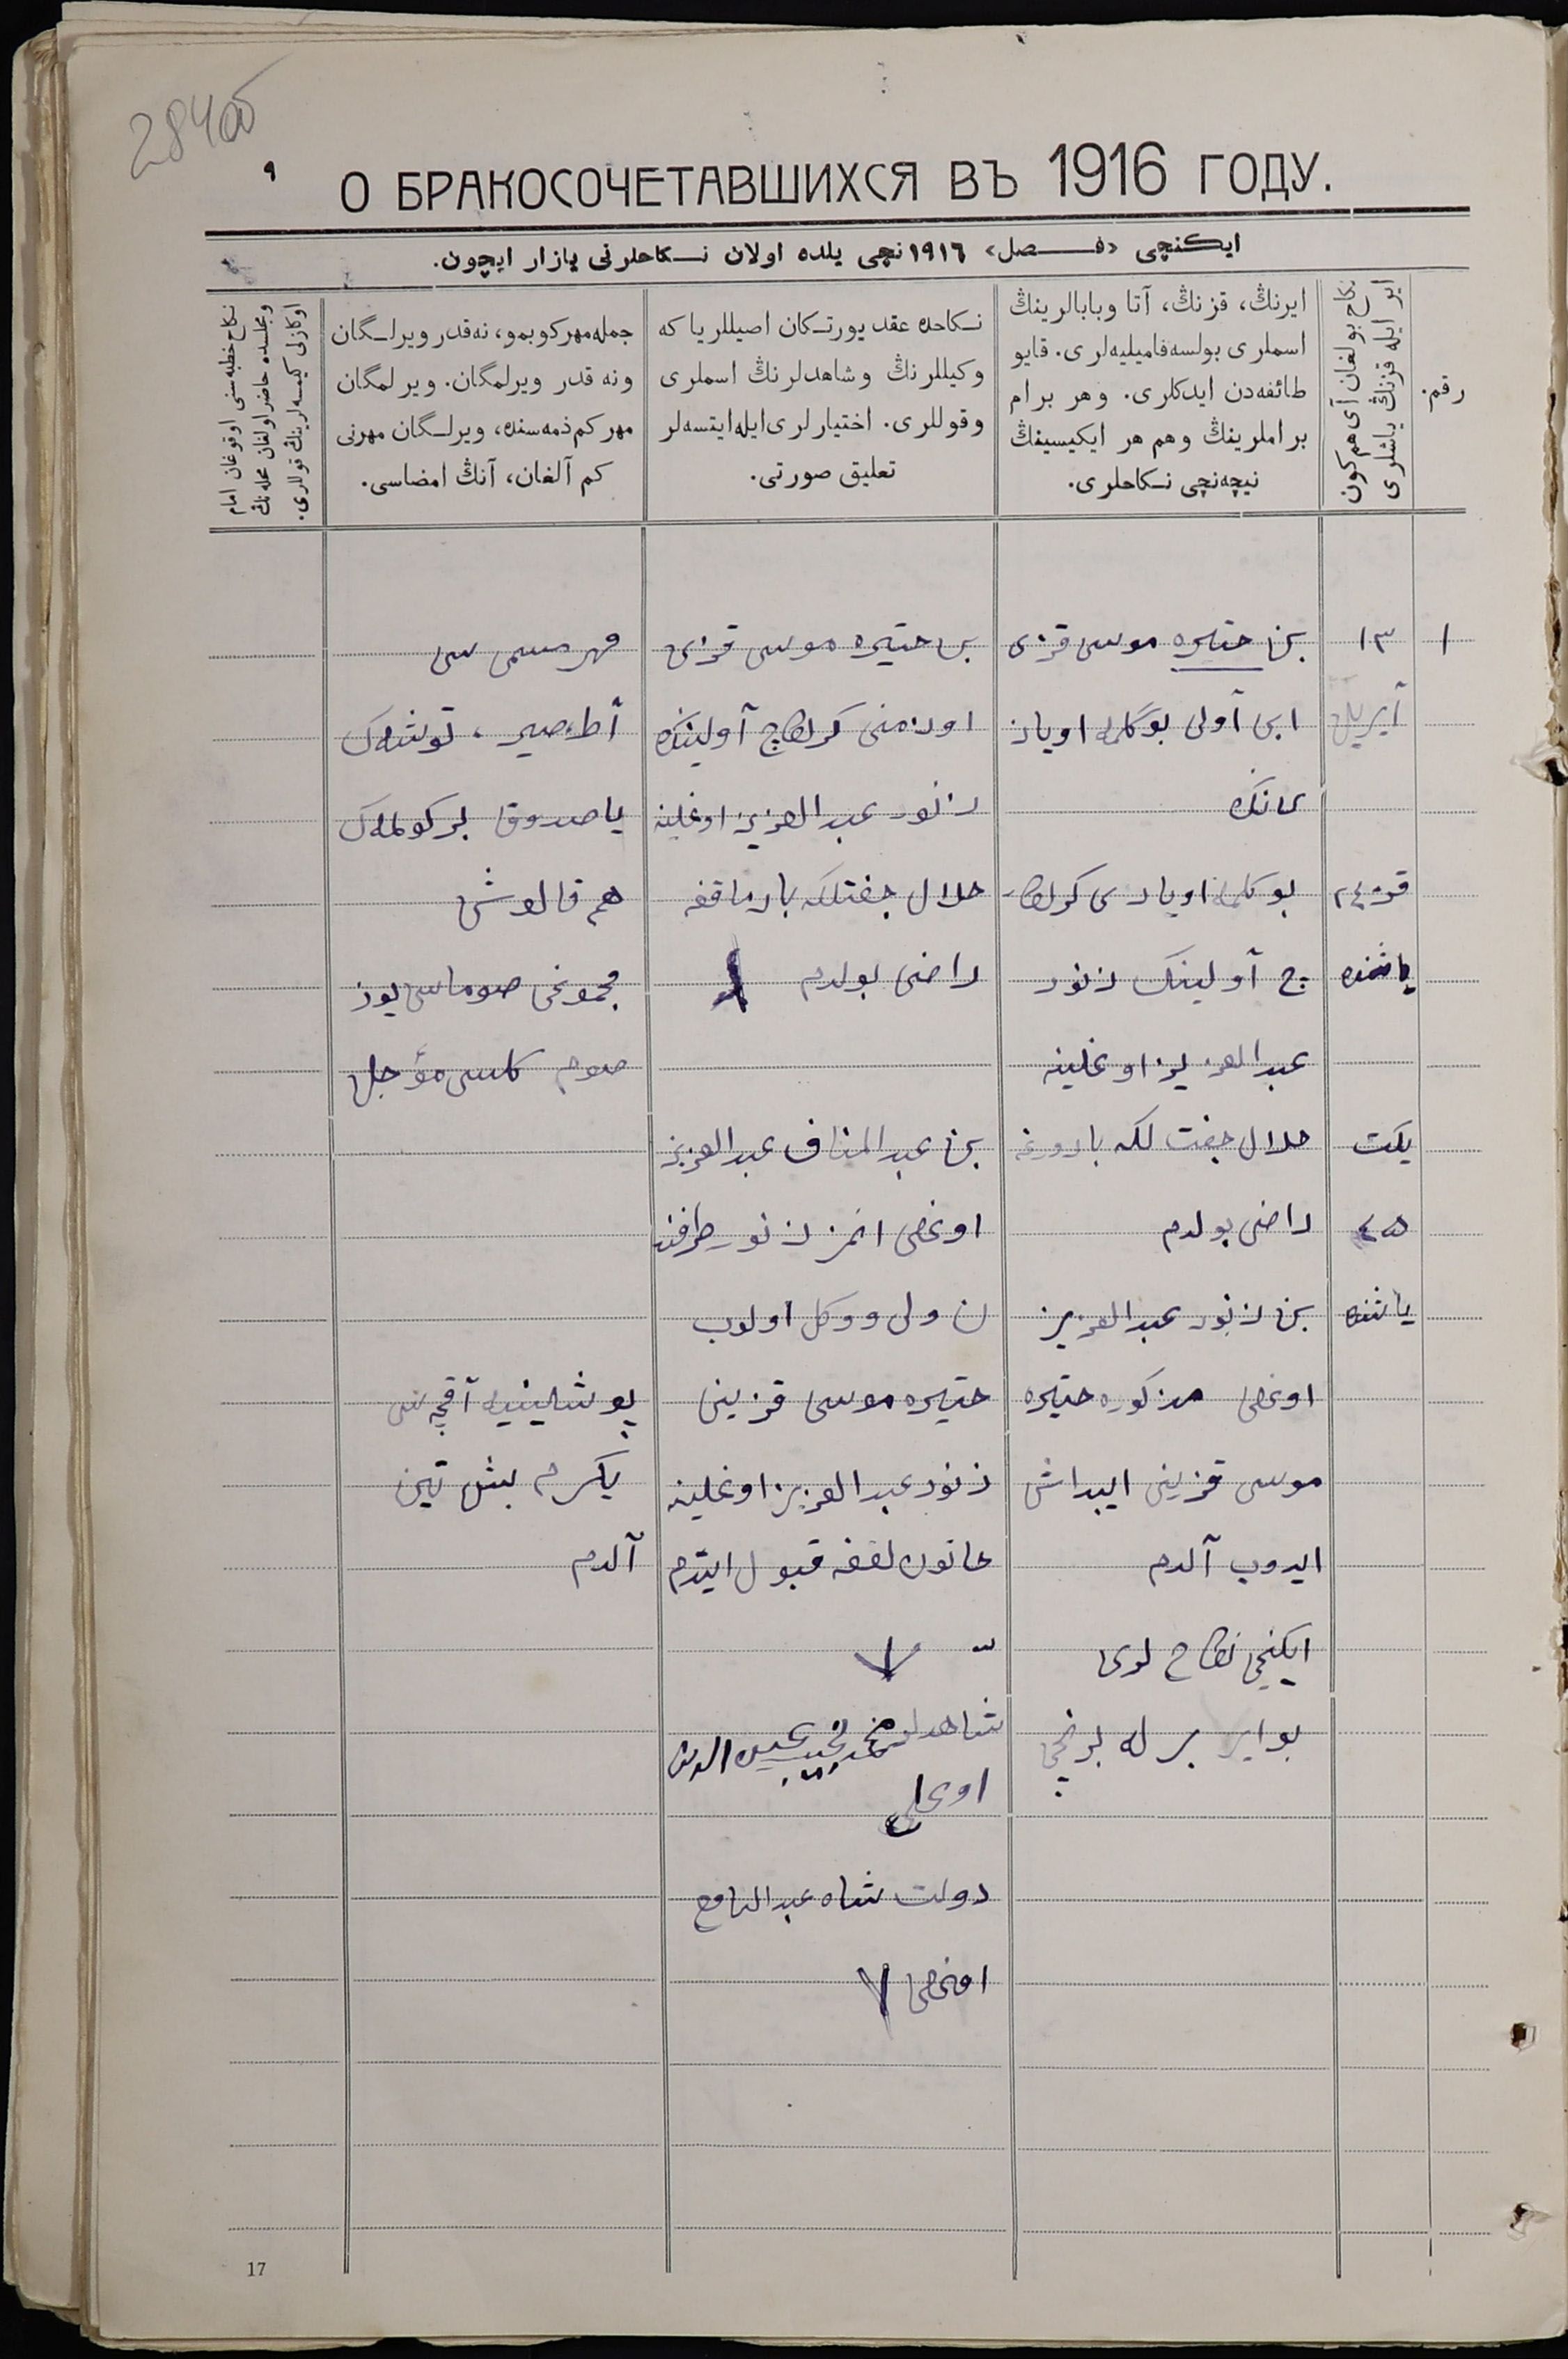 284об
٩
О БРАКОСОЧЕТАВШИХСЯ ВЪ 1916 ГОДУ.
ایكنچی «فـــصل» ١٩١٦نچی یلده اولان نـكاحلرنی یازار ایچون.
رقم.
نكاح بولغان آی هم كون
ایر ایله قزنڭ یاشلری
ایرنڭ، قزنڭ، آتا وبابالرینڭ
اسملری بولسه فامیلیه‌لری. قایو
طائفه‌دن ایدكلری. وهر برام
براملرینڭ وهم هر ایكیسینڭ
نیچه‌نچی نـكاحلری.
نـكاحده عقد یورتـكان اصیللر یا كه
وكیللرنڭ وشاهدلرنڭ اسملری
وقوللری. اختیارلری ایله ایتسه‌لر
تعلیق صورتی.
جمله مهر كوبمو، نه‌قدر ویرلـگان
ونه قدر ویرلمگان. ویرلمگان
مهر كم ذمه‌سنده، ویرلـگان مهرنی
كم آلغان، آنڭ امضاسی.
نكاح خطبه‌سنی اوقوغان امام
ومجلسده حاضر اولغان محله‌نڭ
اوكازلی كیمسه‌لرینڭ قوللری.
١
١٣
آپریل
قز ٢٤
یاشنده
یكت
٤٥
یاشنده
بن حتیره موسی قزی
آولی بوگلمه اویاز
بوگلمه اویازی كرلكا
چ آولینك زنور
عبدالعزیز اوغلینه
حلال جفت لكه بارورغه
راضی بولدم
بن زنور عبدالعزیز
اوغلی مذكوره حتیره
موسی قزینی ایبداش
ایدوب آلدم
ایكنچی نكاح لری
بو ایر برله برنچی
بن حتیره موسی قزی
اوزمنی كرلكاچ آولینك
زنور عبدالعزیز اوغلینه
حلال جفتلكه بارماقغه
راضی بولدم
بن عبدالمناف عبدالعزیز
اوغلی انم زنور طرفند
ن ولی ووكل اولوب
حتیره موسی قزینی
زنور عبدالعزیز اوغلینه
خاتونلغغه قبول ایتدم
شاهدلر محمد نجیب الدین
اوغلی
دولت شاه عبدالنافع
اوغلی
مهر مسمی سی
توشاك
یاصدوق بر كولماك
هم قالوش
مجموعی صوماسی یوز
صوم مؤجل
پوشلینیه آقچه سی
یكرم بیش تین
آلدم
17